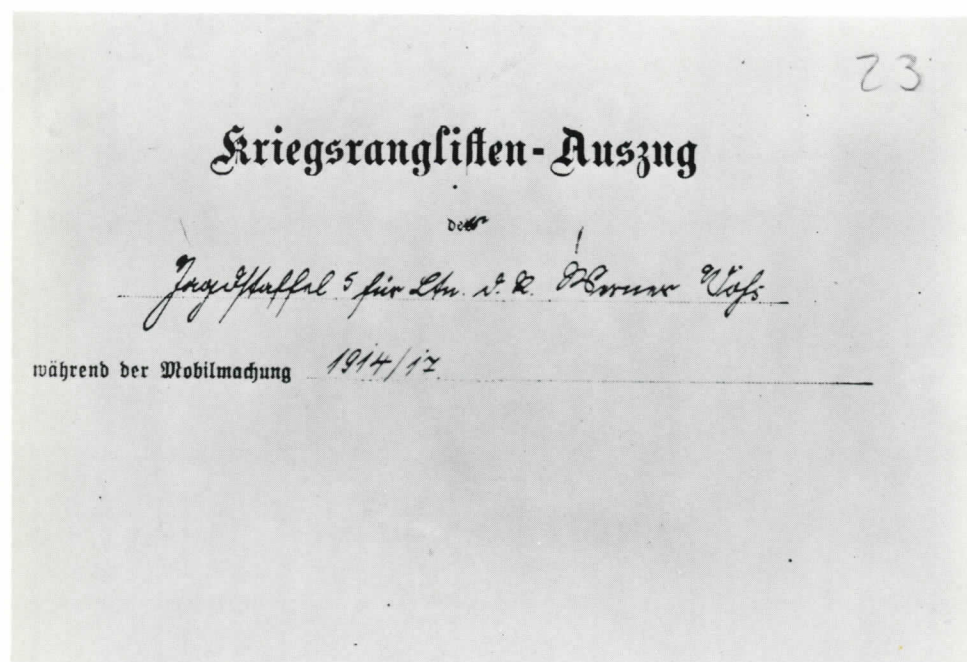 23
Kriegsranglisten-Auszug
der
Jagdstaffel 5 für Ltn. d. R. Werner Voß
während der Mobilmachung 1914/17